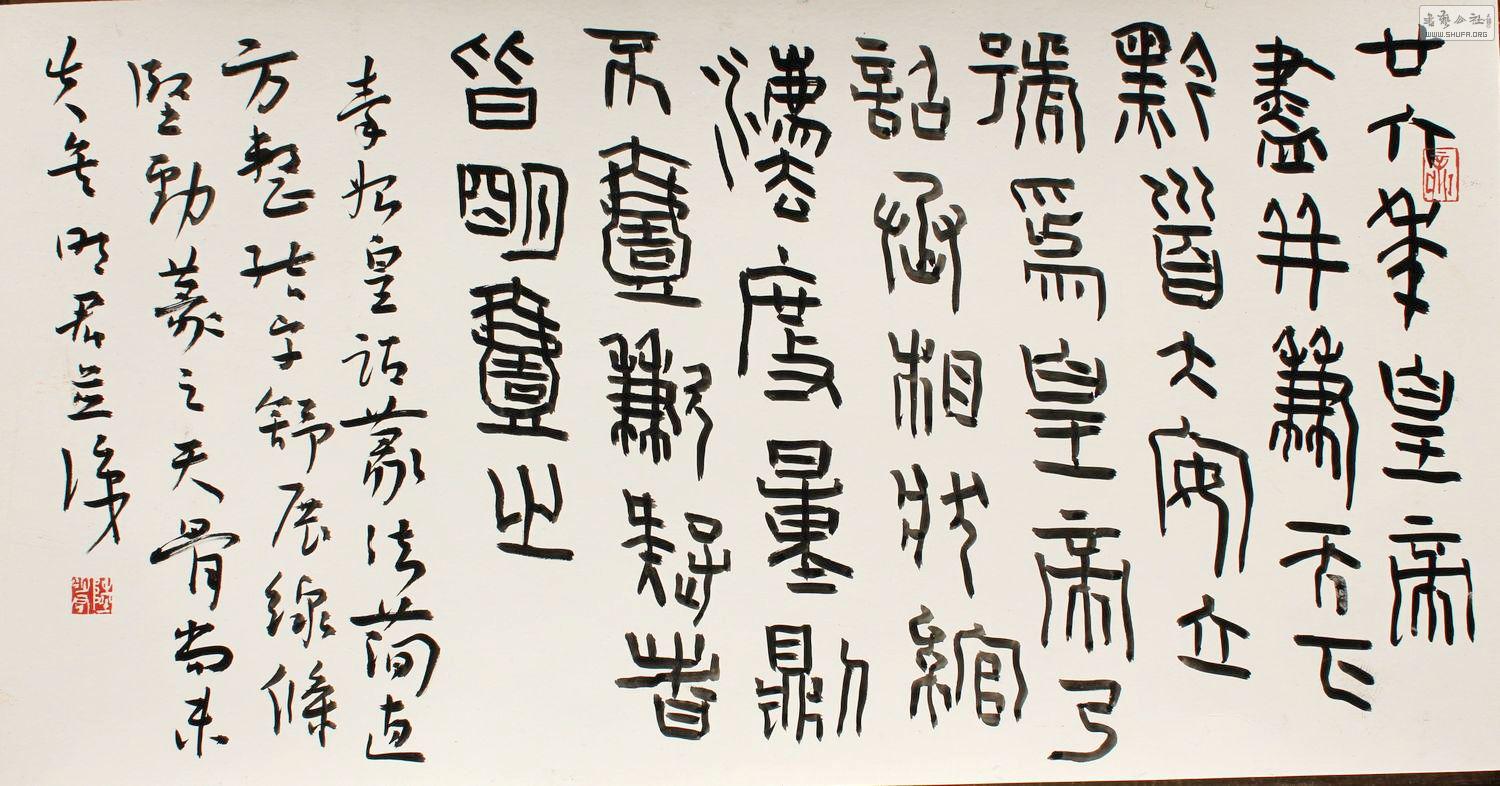 廿六年皇帝
盡并兼天下
黔首大安立
號為皇帝乃
詔丞相狀綰
灋度量則
不壹歉疑者
皆明壹之
秦始皇詔篆法簡直
方整結字舒展線條
堅勁篆之天骨尚未
失矣明君並識
書藝公社
WWW.SHUFA.ORG